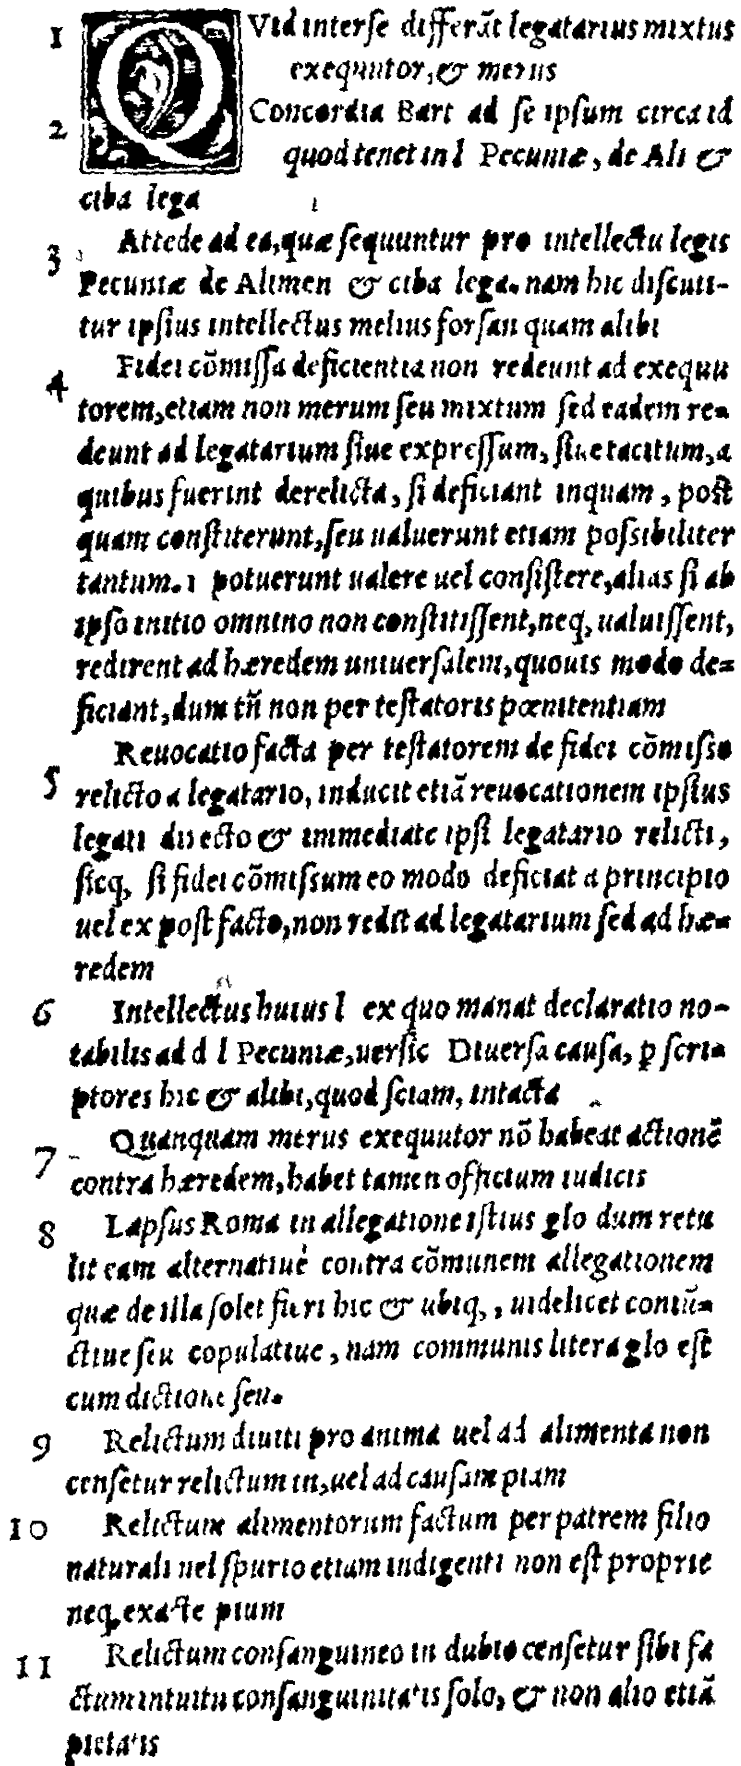 1 QVid interſe differãt legatarius mixtus
exequutor, & merus
2 Concordia Bart ad ſe ipſum circa id
quod tenet in l Pecuniæ, de Ali &
ciba lega
3 Attēde ad ea, quæ ſequuntur pro intellectu legis
Pecuniæ de Alimen & ciba lega. nam hic diſcuti-
tur ipſius intellectus melius forſan quam alibi
4 Fidei cõmiſſa deficientia non redeunt ad exequu
torem, etiam non merum ſeu mixtum ſed eadem re-
deunt ad legatarium ſiue expreſſum, ſiue tacitum, a
quibus fuerint derelicta, ſi deficiant inquam, poſt
quam conſtiterunt, ſeu ualuerunt etiam poſsibiliter
tantum. i potuerunt ualere uel conſiſtere, alias ſi ab
ipſo initio omnino non conſtitiſſent, neq, ualuiſſent,
redirent ad hæredem uniuerſalem, quouis modo de-
ficiant, dum tñ non per teſtatoris pœnitentiam
5 Reuocatio facta per teſtatorem de fidei cõmiſſo
relicto a legatario, inducit etiã reuocationem ipſius
legati directo & immediate ipſi legatario relicti,
ſicq, ſi fidei cõmiſſum eo modo deficiat a principio
uel ex poſt facto, non redit ad legatarium ſed ad hæ-
redem
6 Intellectus huius l ex quo manat declaratio no-
tabilis ad d l Pecuniæ, uerſic Diuerſa cauſa, p ſcri-
ptores hic & alibi, quod ſciam, intacta
7 Quanquam merus exequutor nõ habeat actionē
contra hæredem, habet tamen officium iudicis
8 Lapſus Roma in allegatione iſtius glo dum retu
lit eam alternatiuè contra cõmunem allegationem
quæ de illa ſolet fieri hic & ubiq, , uidelicet coniũ-
ctiue ſeu copulatiue, nam communis litera glo eſt
cum dictione ſeu.
9 Relictum diuiti pro anima uel ad alimenta non
cenſetur relictum in, uel ad cauſam piam
10 Relictum alimentorum factum per patrem filio
naturali uel ſpurio etiam indigenti non eſt proprie
neq, exacte pium
11 Relictum conſanguineo in dubio cenſetur ſibi fa
ctum intuitu conſanguinitatis ſolo, & non alio etiã
pietatis